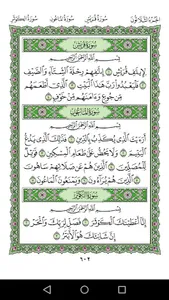 الجزء الثلاثون سورة قريش سورة الماعون سورة الكوثر
سورة قريش
بسم الله الرحمن الرحيم
لإيلاف قريش ۝١ إيلافهم رحلة الشتاء والصيف
۝٢ فليعبدوا رب هذا البيت ۝٣ الذي أطعمهم
من جوع وءامنهم من خوف ۝٤
سورة الماعون
بسم الله الرحمن الرحيم
أرءيت الذي يكذب بالدين ۝١ فذلك الذي يدع
اليتيم ۝٢ ولا يحض على طعام المسكين ۝٣ فويل
للمصلين ۝٤ الذين هم عن صلاتهم ساهون
۝٥ الذين هم يراءون ۝٦ ويمنعون الماعون ۝٧
سورة الكوثر
بسم الله الرحمن الرحيم
إنا أعطيناك الكوثر ۝١ فصل لربك وانحر
۝٢ إن شانئك هو الأبتر ۝٣
٦٠٢